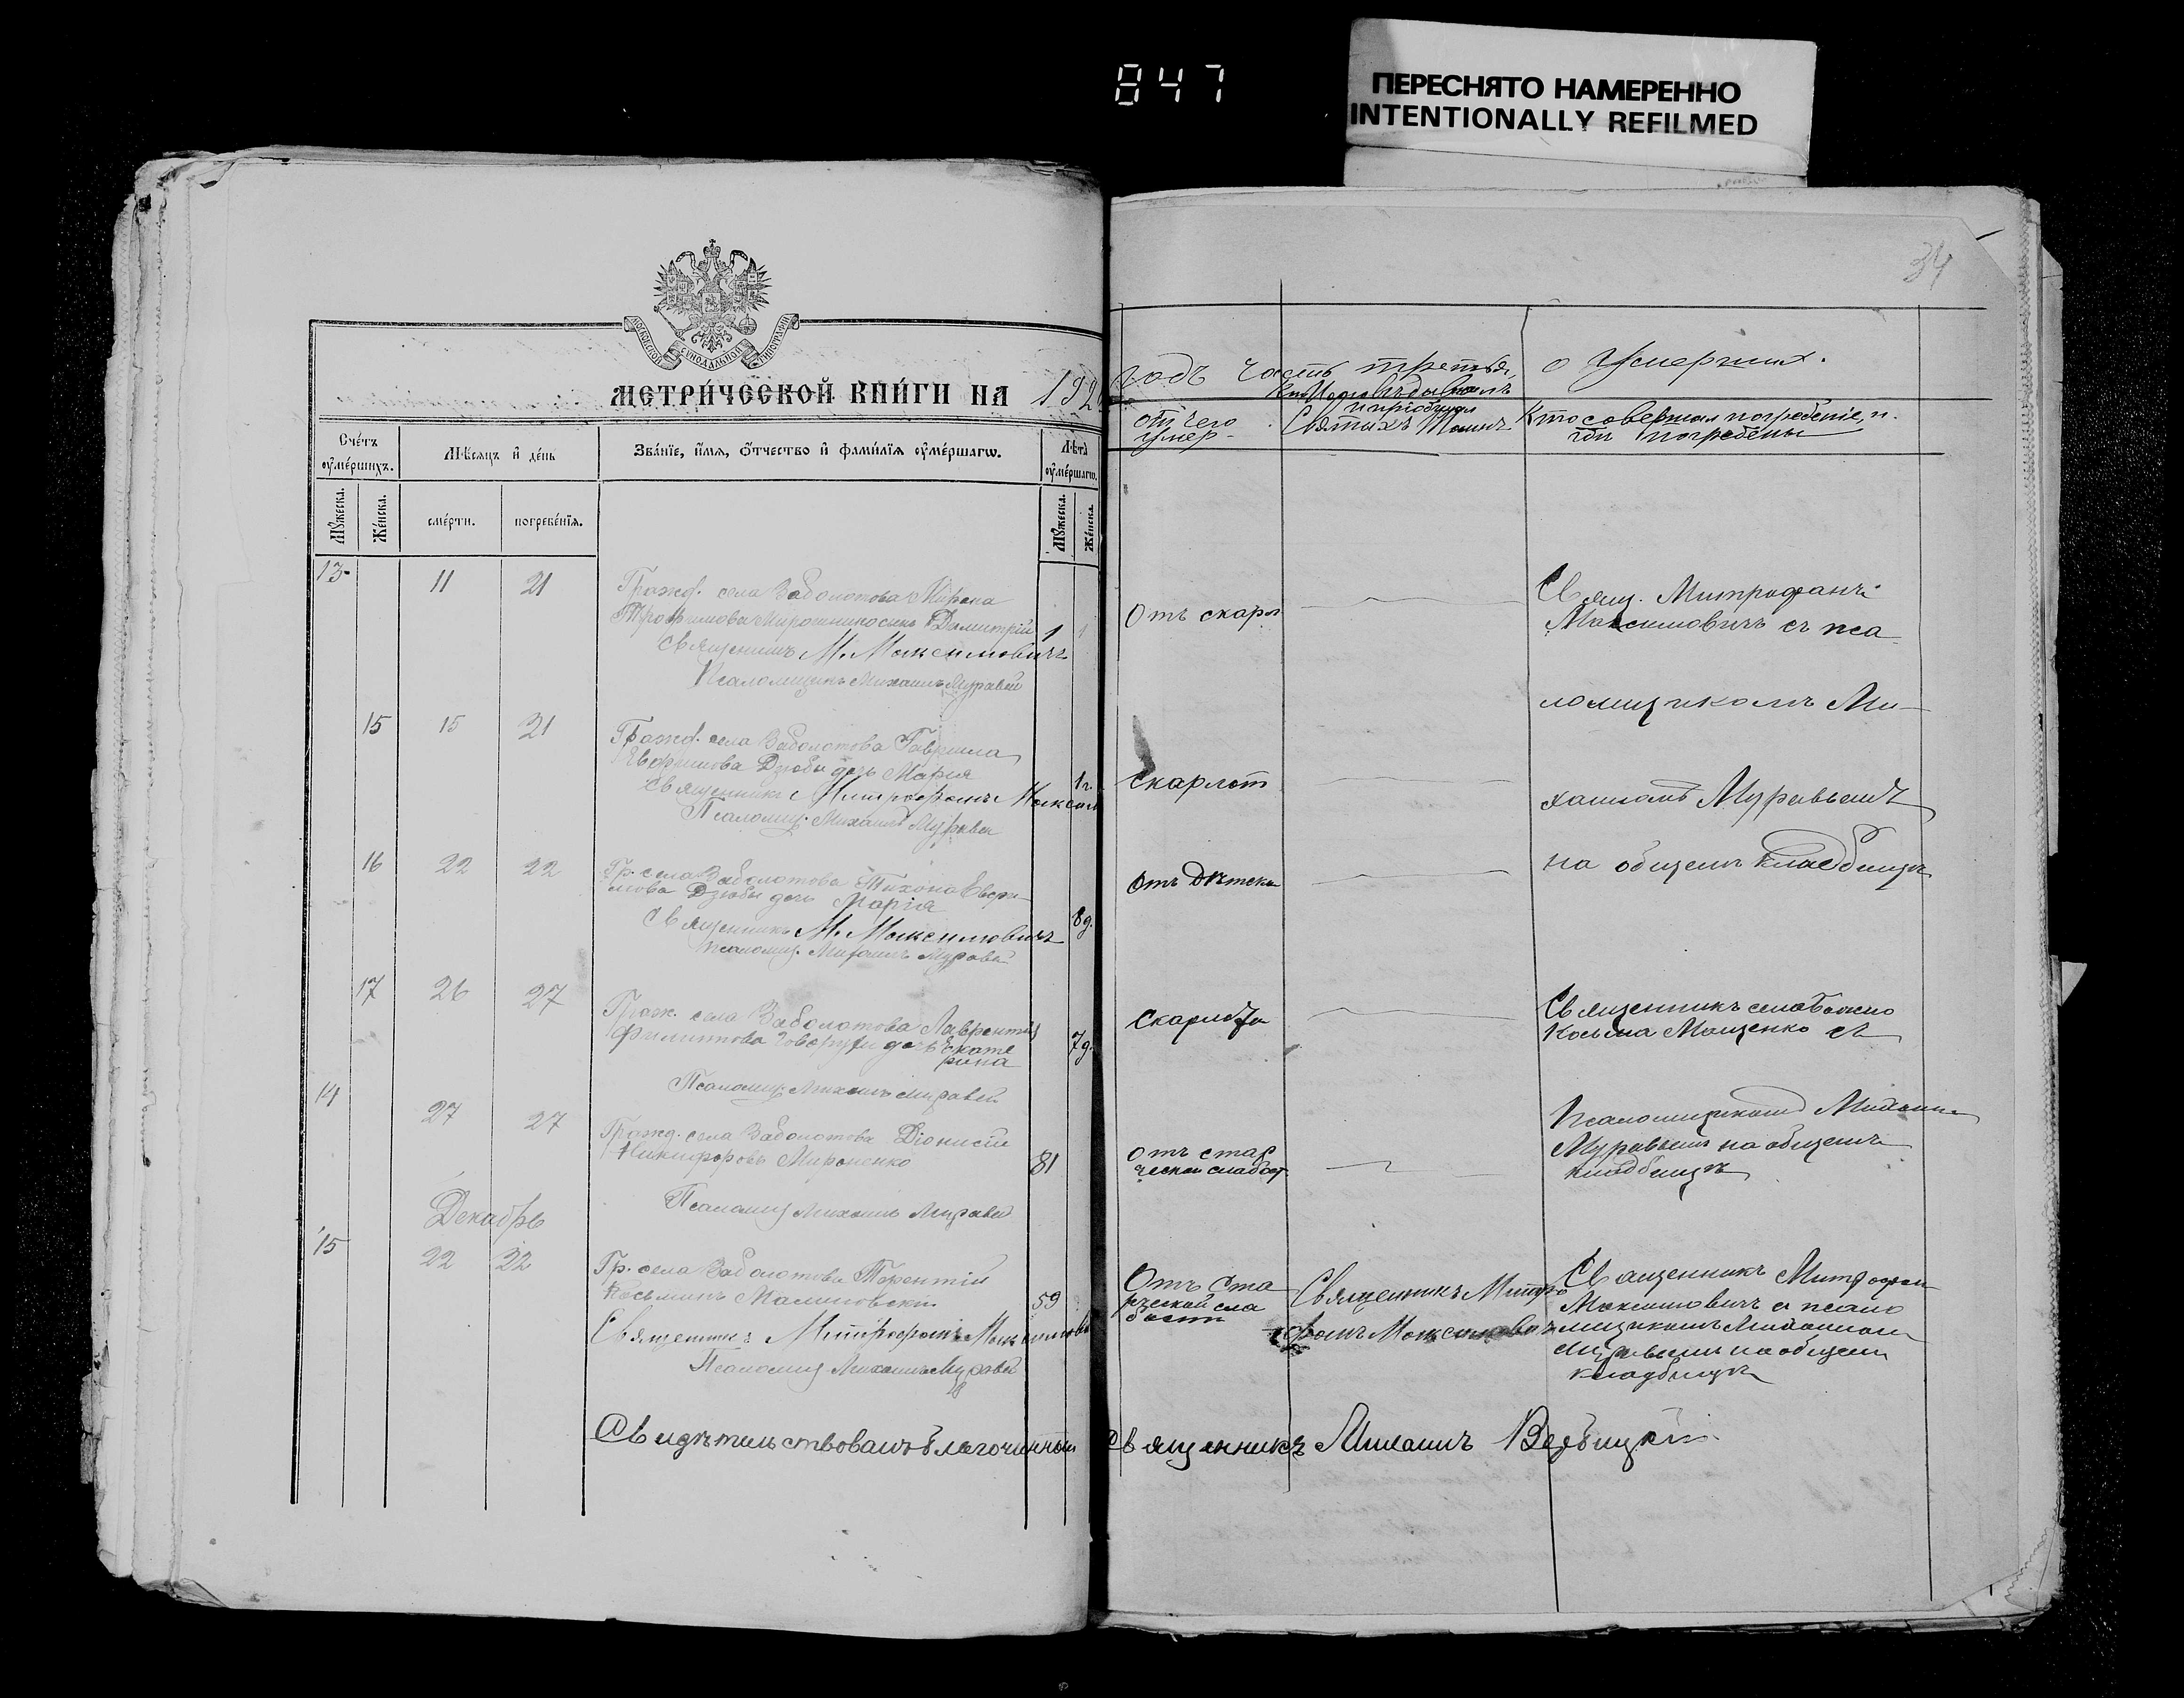 847
ПЕРЕСНЯТО НАМЕРЕННО
INTENTIONALLY REFILMED
34
МОСКОВСКОЙ СѴНОДАЛЬНОЙ ТИПОГРАФІИ
МЕТРИ́ЧЕСКОЙ КНИ́ГИ НА 192
годъ часть третья, о Умершихъ.
Счéтъ ᲂу҆мéршихъ.
Мѣ́сяцъ и҆ дéнь
Звáнїе, и҆́мя, ѻ҆́тчество и҆ фами́лїя ᲂу҆мéршагѡ.
Лѣ́та ᲂу҆мéршагѡ.
Мꙋ́жеска.
Жéнска.
смéрти.
погребéнїя.
Мꙋ́жеска.
Жéнска.
отъ чего умер
Кто Исповѣдывалъ и пріобщал Святыхъ Таинъ
Кто совершал погребеніе, и гдѣ погребены
13
11
21
Гражд. села Заболотова Мирона
Трофимова Мирошника сынъ Димитрій
1
Священникъ М. Максимовичъ
Псаломщикъ Михаилъ Муравей
Отъ скарл
Свящ. Митрофанъ
Максимовичъ съ пса
ломщикомъ Ми-
хаиломъ Муравьемъ
на общемъ кладбищѣ
15
15
21
Гражд. села Заболотова Гавриила
Евфимова Дзюбы дочь Мария
1г.
Священникъ Митрофанъ Максим
Псаломщ. Михаилъ Муравей
Скарлат
16
22
22
Гр. села Заболотова Тихона Евфи-
мова Дзюбы дочь Марія
8д.
Священникъ М. Максимовичъ
Псаломщ. Михаилъ Муравей
Отъ Дѣтска
17
26
27
Граж. села Заболотова Лаврентія
Филиппова дочь Екате
рина
7д.
Псаломщ. Михаилъ Муравей
Священникъ села
Косьма Мощенко съ
14
27
27
Гражд. села Заболотова Діонисій
Никифоровъ Мироненко
81
Псаломщ Михаилъ Муравей
отъ стар
ческой слабост
Псаломщикомъ Михаил
Муравьемъ на общемъ
кладбищѣ
Декабрь
15
22
22
Гр. села Заболотова Терентій
Косьминъ Малиновскій
59
Священникъ Митрофанъ Максимов
Псаломщ Михаилъ Муравей
Отъ Ста
рческой сла
бости
Священникъ Митро
фанъ Максимович
Священникъ Митрофан
Максимовичъ съ псало
мщикомъ Михаилом
Муравьемъ на общем
кладбищѣ
Свидѣтельствовалъ благочинный Священникъ Михаилъ Вербицкій